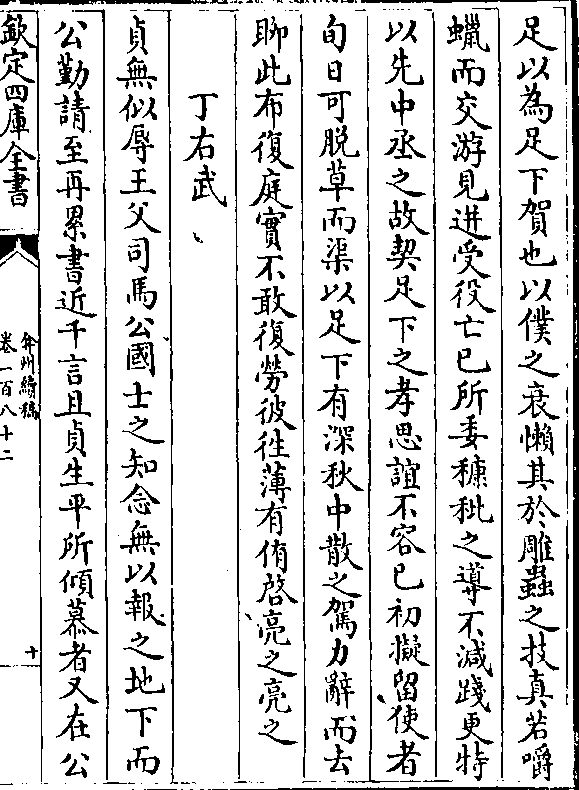 足以為足下賀也以僕之衰懶其於雕蟲之技真若嚼
蠟而交游見迸受役亡已所委穅秕之導不減踐更特
以先中丞之故契足下之孝思誼不容已初擬留使者
旬日可脫草而渠以足下有深秋中散之駕力辭而去
聊此布復庭實不敢復勞彼徃薄有侑啓亮之亮之
丁右武
貞無似辱王父司馬公國士之知念無以報之地下而
公勤請至再累書近千言且貞生平所傾慕者又在公
欽定四庫全書
弇州續稿
卷一百八十二
十